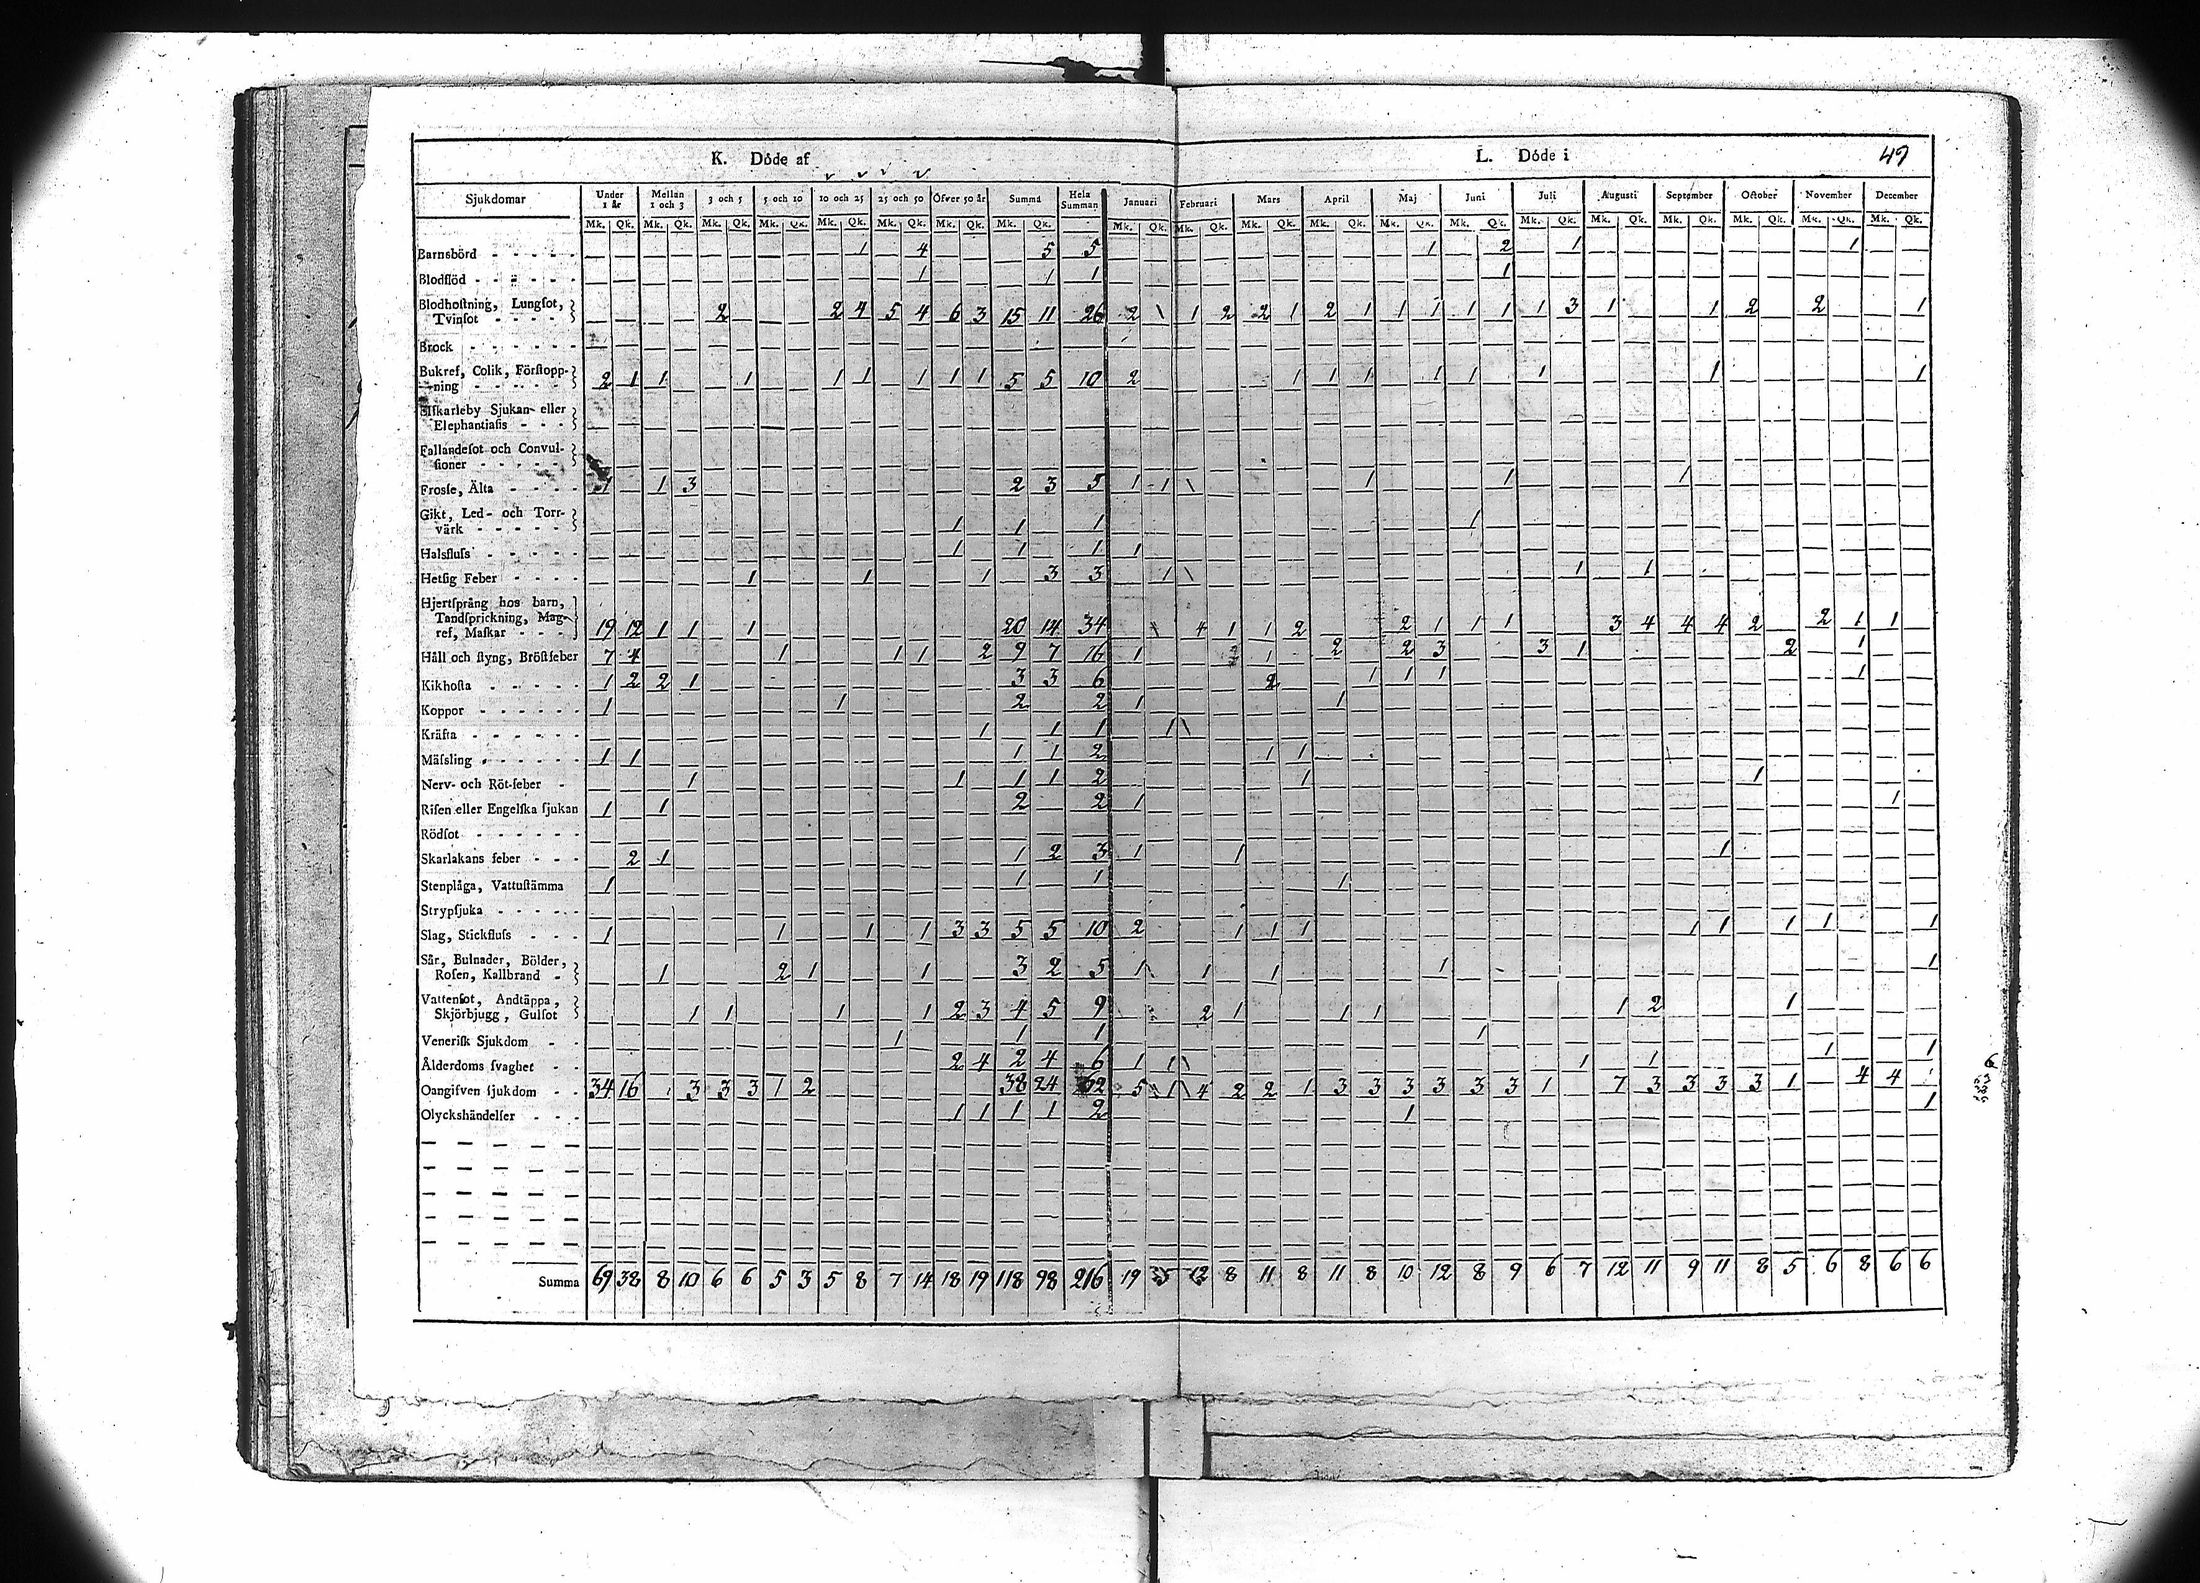 K. Döde af
L. Döde i 47
Sjukdomar Under 1 år Mellan 1 och 3 3 och 5 5 och 10 10 och 25 25 och 50 Öfver 50 år Summa Hela Summan Januari Februari Mars April Maj Juni Juli Augusti September October November December
Mk. Qk. Mk. Qk. Mk. Qk. Mk. Qk. Mk. Qk. Mk. Qk. Mk. Qk. Mk. Qk. Mk. Qk. Mk. Qk. Mk. Qk. Mk. Qk. Mk. Qk. Mk. Qk. Mk. Qk. Mk. Qk. Mk. Qk. Mk. Qk. Mk. Qk. Mk. Qk.
Barnsbörd 1 4 5 5 1 2 1 1
Blodflöd 1 1 1 1
Blodhoſtning, Lungſot,
Tvinſot 2 2 4 5 4 6 3 15 11 26 2 1 1 2 2 1 2 1 1 1 1 1 1 3 1 1 2 2 1
Brock
Bukref, Colik, Förſtopp-
ning 2 1 1 1 1 1 1 1 1 5 5 10 2 1 1 1 1 1 1 1 1
Elſkarleby Sjukan eller
Elephantiaſis
Fallandeſot och Convul-
ſioner
Froſſe, Älta 1 1 3 2 3 5 1 1 1 1 1
Gikt, Led- och Torr-
värk 1 1 1 1
Halsfluſs 1 1 1 1
Hetſig Feber 1 1 1 3 3 1 1 1
Hjertſprång hos barn,
Tandſprickning, Mag-
ref, Maſkar 19 12 1 1 1 20 14 34 4 1 1 2 2 1 1 1 3 4 4 4 2 2 1 1
Håll och ſtyng, Bröſtfeber 7 4 1 1 1 2 9 7 16 1 2 1 2 2 3 3 1 2 1
Kikhoſta 1 2 2 1 3 3 6 2 1 1 1 1
Koppor 1 1 2 2 1 1
Kräfta 1 1 1 1
Mäſsling 1 1 1 1 2 1 1
Nerv- och Röt-feber 1 1 1 1 2 1 1
Riſen eller Engelſka ſjukan 1 1 2 2 1 1
Rödſot
Skarlakans feber 2 1 1 2 3 1 1 1
Stenplåga, Vattuſtämma 1 1 1 1
Strypſjuka
Slag, Stickfluſs 1 1 1 1 3 3 5 5 10 2 1 1 1 1 1 1 1 1
Sår, Bulnader, Bölder,
Roſen, Kallbrand 1 2 1 1 3 2 5 1 1 1 1 1
Vattenſot, Andtäppa,
Skjörbjugg, Gulſot 1 1 1 1 2 3 4 5 9 2 1 1 1 1 2 1
Veneriſk Sjukdom 1 1 1 1
Ålderdoms ſvaghet 2 4 2 4 6 1 1 1 1 1 1
Oangifven ſjukdom 34 16 3 3 3 1 2 38 24 62 5 1 4 2 2 1 3 3 3 3 3 3 1 7 3 3 3 3 1 4 4 1
Olyckshändelſer 1 1 1 1 2 1 1
Summa 69 38 8 10 6 6 5 3 5 8 7 14 18 19 118 98 216 19 5 12 8 11 8 11 8 10 12 8 9 6 7 12 11 9 11 8 5 6 8 6 6